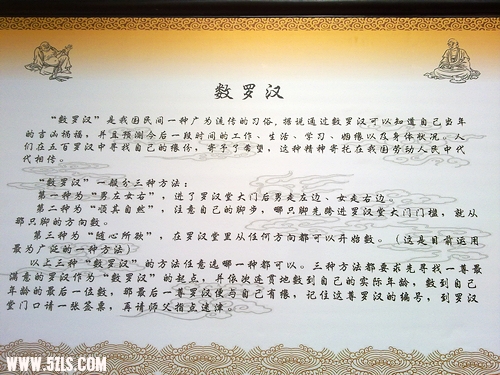 数罗汉
“数罗汉”是我国民间一种广为流传的习俗,据说通过数罗汉可以知道自己当年
的吉凶祸福,并且预测今后一段时间的工作、生活、学习、姻缘以及身体状况。人
们在五百罗汉中寻找自己的缘份,寄予了希望,这种精神寄托在我国劳动人民中代
代相传。
“数罗汉”一般分三种方法:
第一种为“男左女右”,进了罗汉堂大门后男走左边、女走右边。
第二种为“顺其自然”,注意自己的脚步,哪只脚先跨进罗汉堂大门门槛,就从
那只脚的方向数。
第三种为“随心所欲”,在罗汉堂里从任何方向都可以开始数。(这是目前运用
最为广泛的一种方法)
以上三种“数罗汉”的方法任意选哪一种都可以。三种方法都要求先寻找一尊最
满意的罗汉作为“数罗汉”的起点,并依次连贯地数到自己的实际年龄,数到自己
年龄的最后一位数,那最后一尊罗汉便与自己有缘,记住这尊罗汉的编号,到罗汉
堂门口请一张签票,再请师父指点迷津。
WWW.5ZLS.COM